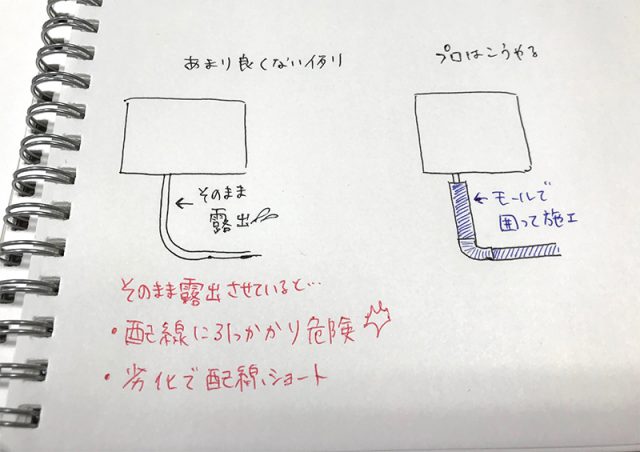 あまり良くない例り
プロはこうやる
← そのまま
露出
← モールで
囲って施工
そのまま露出させていると…
・配線に引っかかり危険
・劣化で配線ショート